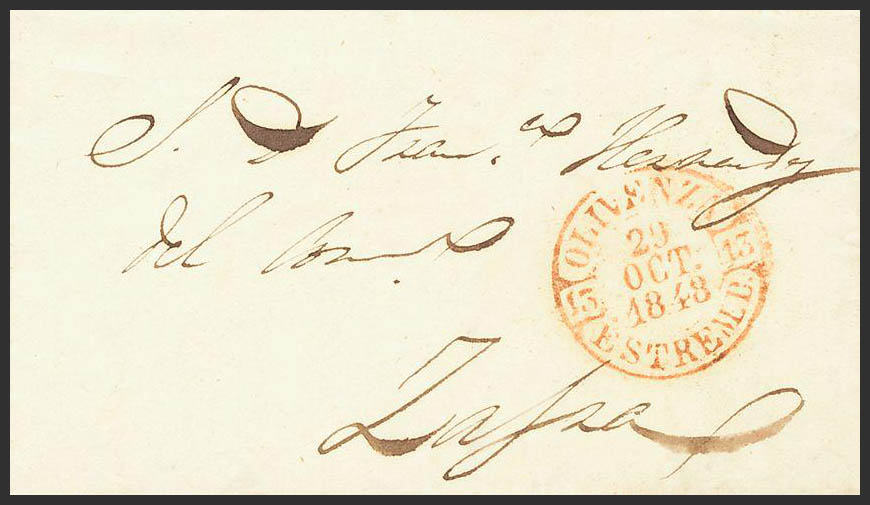 S. D. Fran.co Hernandez
del Com.o
Zafra
OLIVENZA
13 13
29
OCT.
1848
ESTREMD.